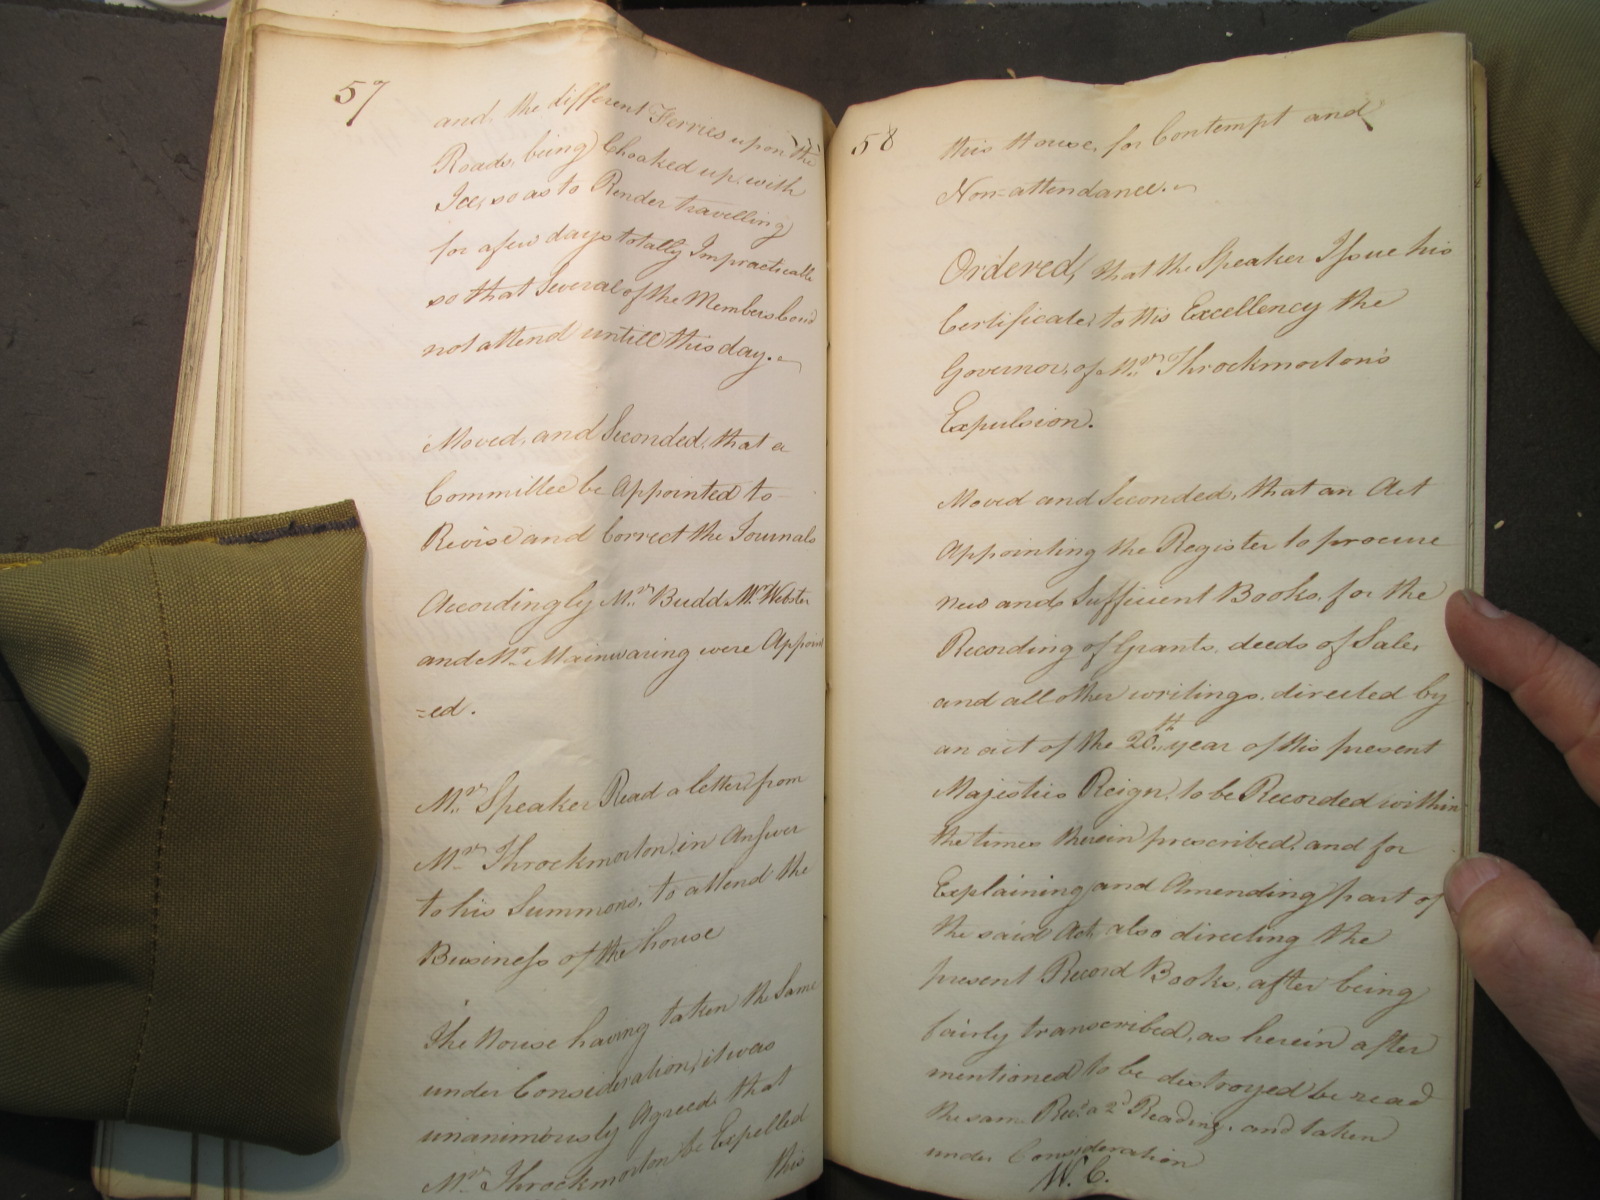 57
and the different Ferries upon the
Roads, being Choaked up, with
Ice, so as to Render travelling
for a few days totally Impracticable
so that Several of the Members coud
not attend untill this day.
Moved, and Seconded, that a
Committee be Appointed to
Revise and Correct the Journals
Accordingly Mr. Budd Mr. Webster
and Mr. Mainwaring were Appoint
=ed.
Mr. Speaker Read a letter from
Mr. Throckmorton, in Answer
to his Summons, to attend the
Business of the house
The House having taken the Same
under Consideration, it was
unanimously Agreed that
Mr. Throckmorton be Expelled
this
58
this House, for Contempt and
Non-attendance.
Ordered, that the Speaker Issue his
Certificate, to His Excellency the
Governor, of Mr. Throckmorton's
Expulsion.
Moved and Seconded, that an Act
Appointing the Register to procure
new and Sufficient Books, for the
Recording of Grants, deeds of Sale,
and all other writings, directed by
an act of the 20th year of His present
Majesties Reign, to be Recorded within
the times therein prescribed, and for
Explaining and Amending part of
the said Act, also directing the
present Record Books, after being
fairly transcribed, as herein after
mentioned to be destroyed be read
the same Recd. a 2d Reading, and taken
under Consideration
W. C.